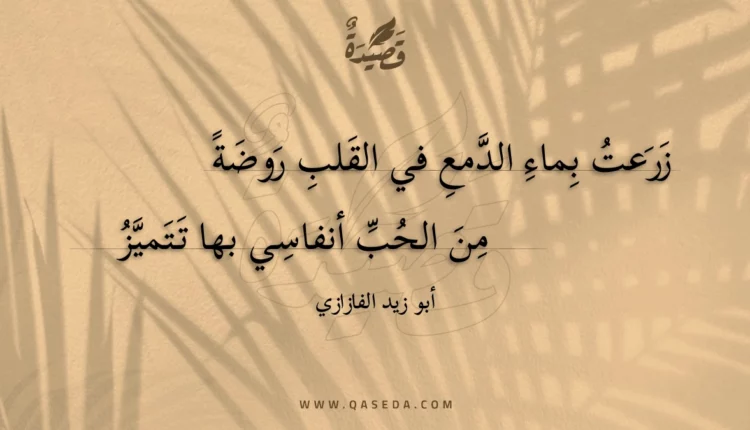 قَصِيدَةٌ
زَرَعتُ بِماءِ الدَّمعِ في القَلبِ رَوضَةً
مِنَ الحُبِّ أنفاسِي بها تَتَميَّزُ
أبو زيد الفازازي
WWW.QASEDA.COM